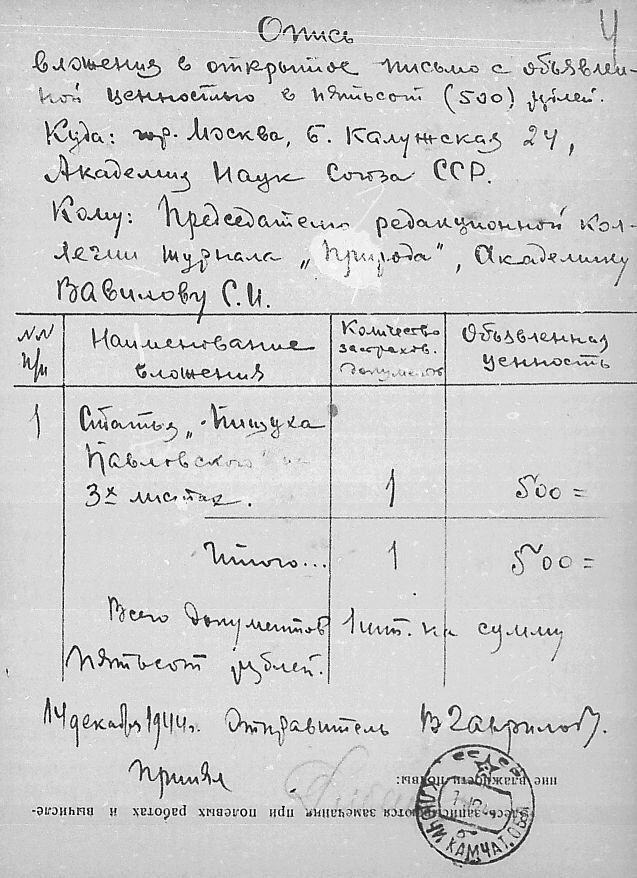 Опись
4
вложения в открытое письмо с объявлен-
ной ценностью в пятьсот (500) рублей.
Куда: гор. Москва, Б. Калужская 24,
Академия Наук Союза ССР.
Кому: Председателю редакционной кол-
легии журнала „Природа", Академику
Вавилову С.И.
NN п/п
Наименование вложения
Количество застрахов. документов
Объявленная ценность
1
Статья „Пищуха
Павловского" на
3х листах.
1
500=
Итого... 1 500=
Всего документов 1 шт. на сумму
пятьсот рублей.
14 декабря 1944 г. Отправитель В Гаврилов.
Принял
ние влажности почвы:
здесь записываются замечания при полевых работах и вычисле-
СССР
КЛЮЧИ КАМЧАТ. ОБЛ